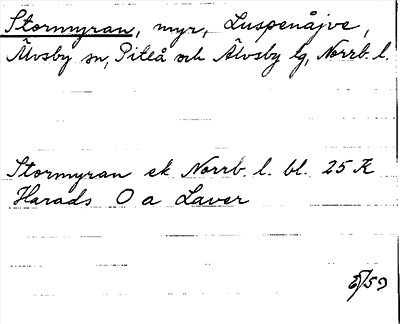 Stormyran, myr, Luspenåjve,
Älvsby sn, Piteå och Älvsby lg, Norrb. l.
Stormyran ek Norrb. l. bl. 25 K
Harads O a Laver
5/59